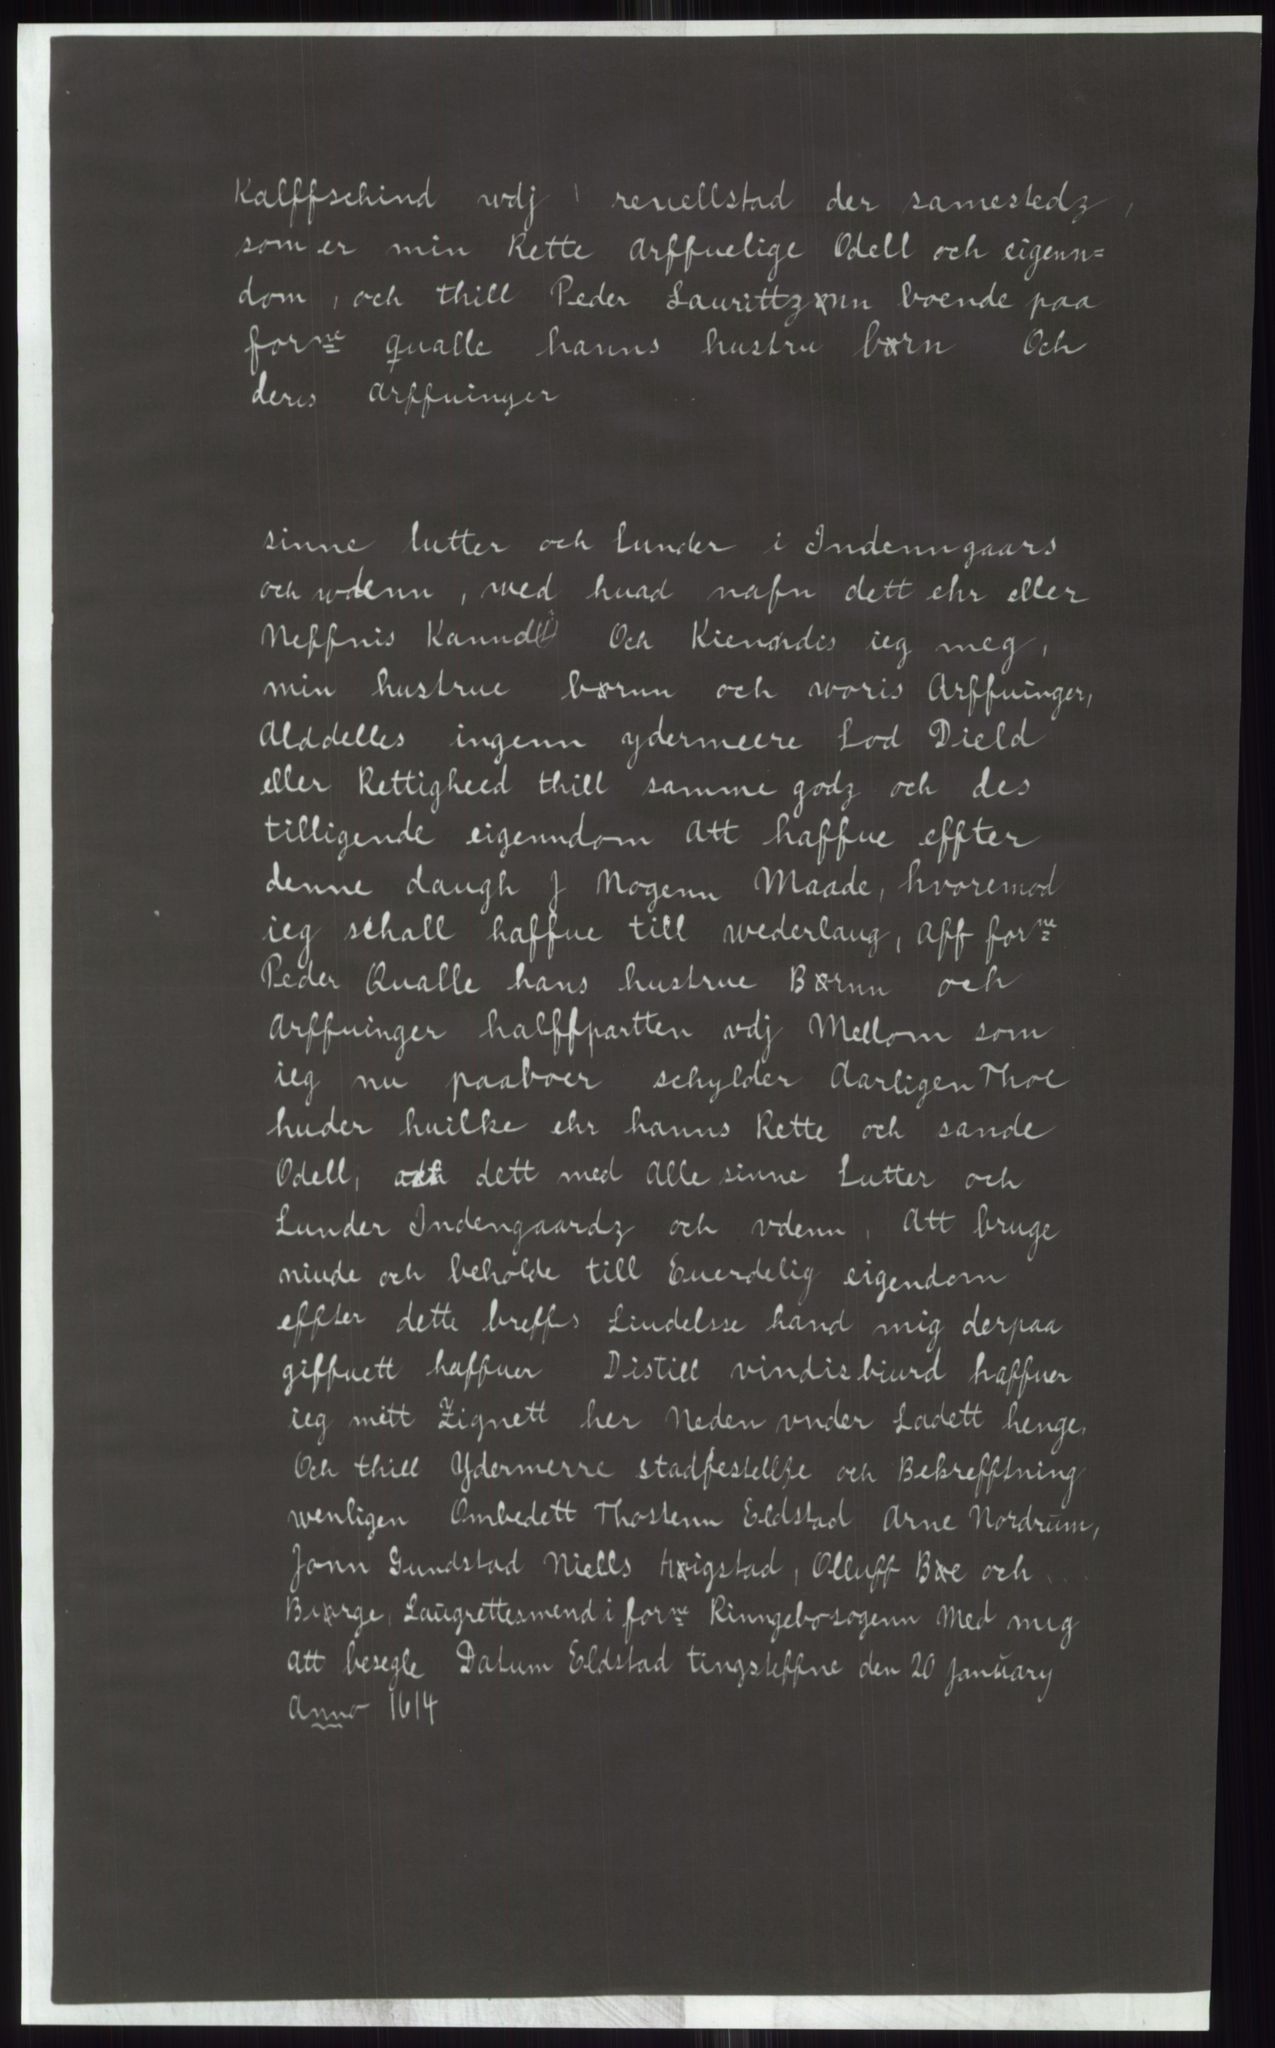 Kalffschind wdj renellstad der samestedz,
som er min Rette arffuelige Odell och eigenn=
dom, och thill Peder Laurittzønn boende paa
forne qualle hanns hustru børn Och
deris arffuinger
sinne lutter och lunder i Indenngaars
och wdenn, med huad nafn dett ehr eller
Neffnis Kannd Och Kiendis ieg meg,
min hustrue børnn och woris Arffuinger,
Alddelles ingenn ydermeere Lod Dield
eller Rettigheed thill samme godz och des
tilligende eigenndom Att haffue effter
denne daugh J Nogenn Maade, hvoremod
ieg schall haffue till wederlaug, aff forne
Peder Qualle hans hustrue Børnn och
Arffuinger halffpartten vdj Mellom som
ieg nu paaboer schylder Aarligen Thoe
huder huilke ehr hanns Rette och sande
Odell, och dett med Alle sinne Lutter och
Lunder Indengaardz och vdenn, Att bruge
niude och beholde till Euerdelig eigendom
effter dette breffs Liudelsse hand mig derpaa
giffuett haffuer Distill vindisbiurd haffuer
ieg mitt Zignett her Neden vnder Ladett henge,
Och thill Ydermerre stadfestellße och Bekrefftning
wenligen Ombedett Thostenn Eldstad Arne Nordrum,
Jonn Gundstad Niells Høigstad, Olluff Bøe och
Biørge, Laugrettesmend i forne Rinngebo sogenn Med mig
att besegle Datum Eldstad tingsteffne den 20 January
Anno 1614